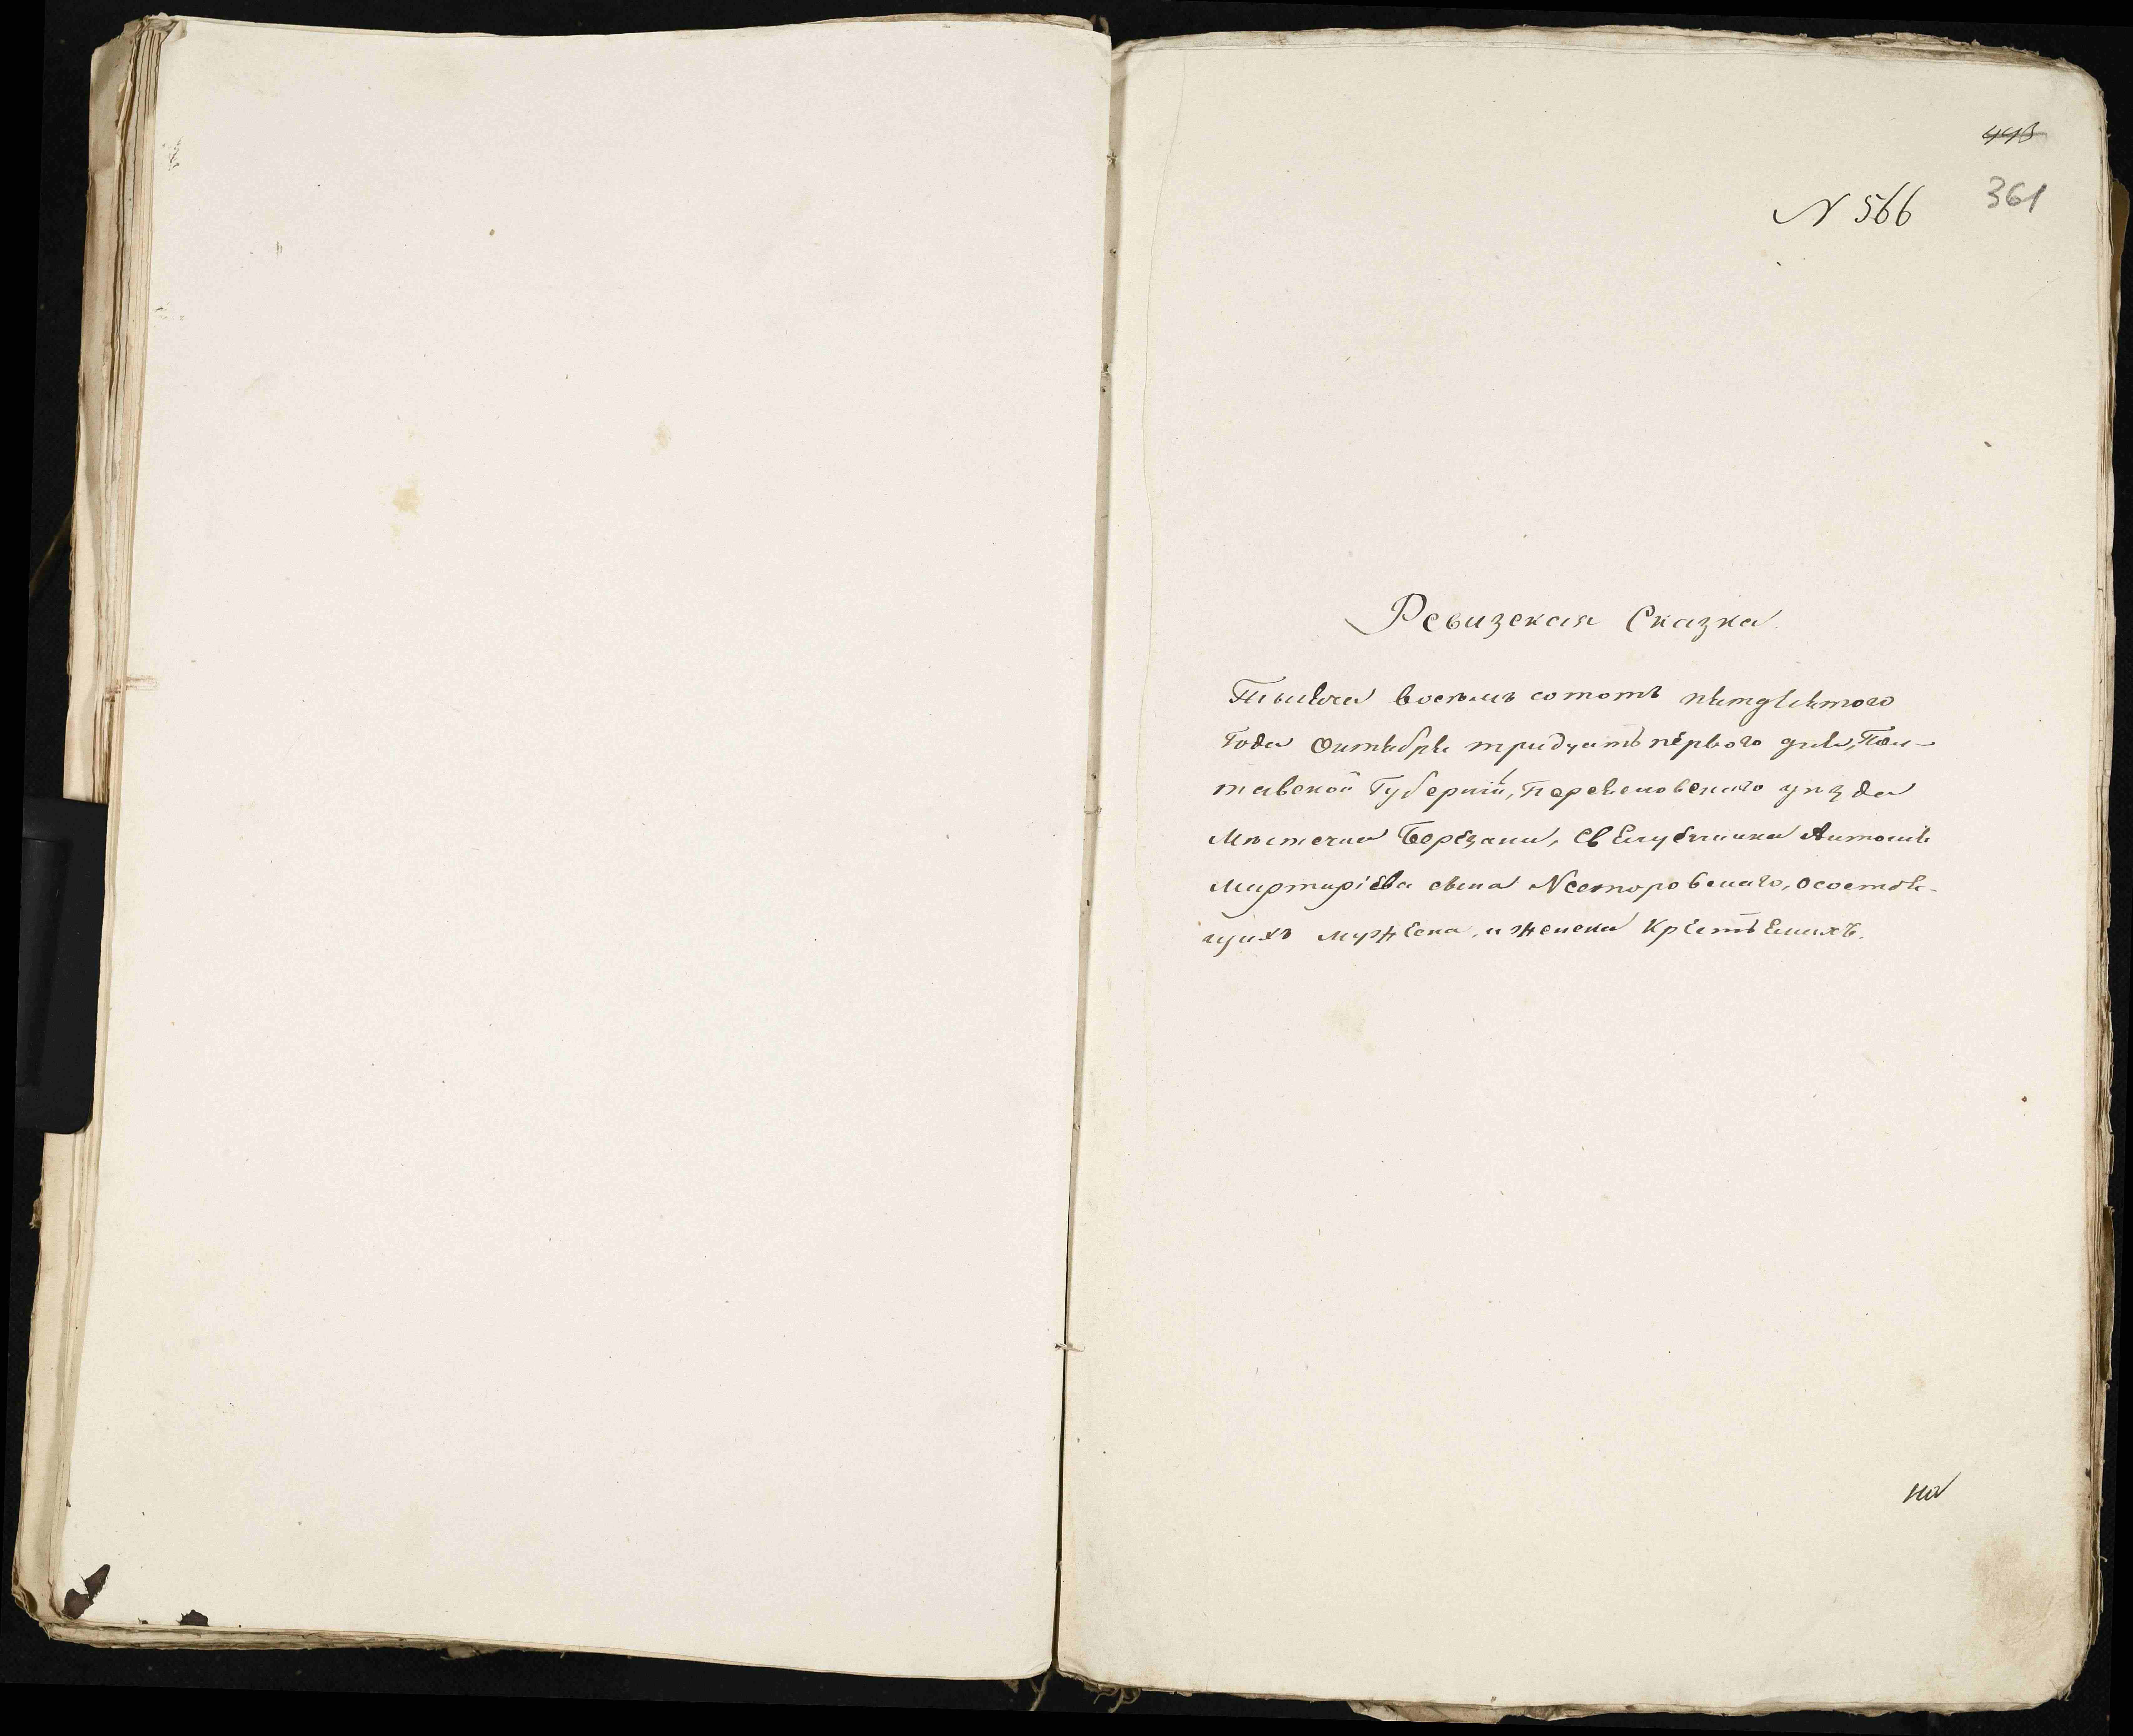 443
N 566 361
Ревизская Сказка
Тысяча восемь сототъ пятдесятого
Года Октября тридцать первого дня, Пол-
тавской Губерніи, Переясловского уѣзда
Мѣстечка Березани, Антонія
Мартиріева сына Несторовскаго, осостоя-
щихъ мужеска, и женска Крестьянахъ.
на